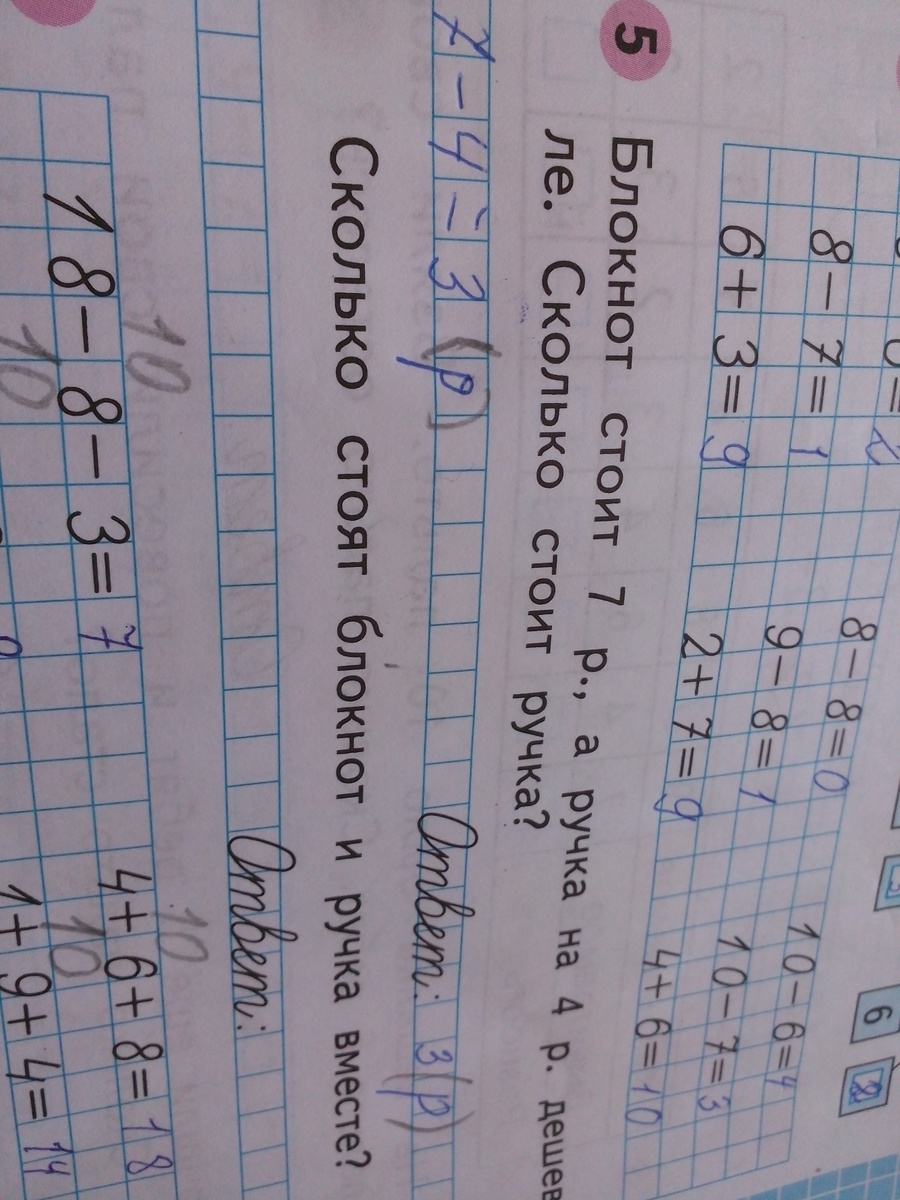 8-8=0
10-6=4
8-7=1
9-8=1
10-7=3
6+3=9
2+7=9
4+6=10
6
5
Блокнот стоит 7 р., а ручка на 4 р. дешев
ле. Сколько стоит ручка?
7-4=3 (р) Ответ: 3(р)
Сколько стоят блокнот и ручка вместе?
Ответ:
10
10
18-8-3=7
4+6+8=18
10
10
1+9+4=14